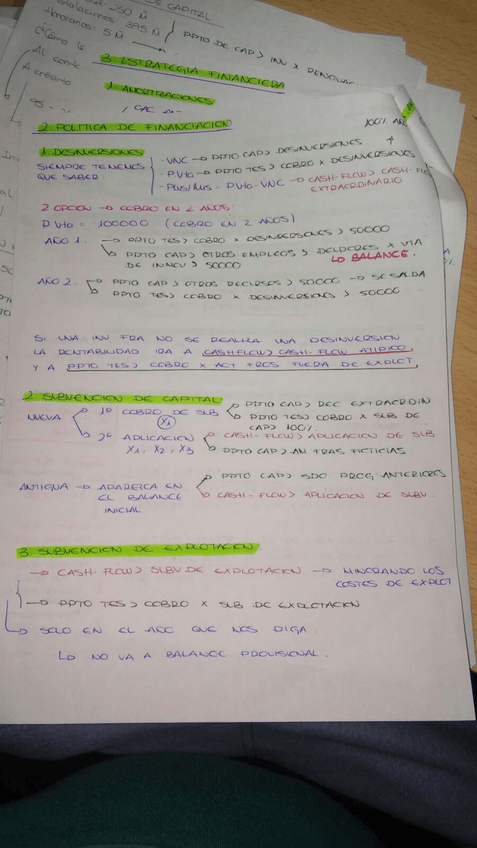 DE CAPITAL
Honorarios: 5 M
PPTO DE CAP > INV X RENOVAC
3. ESTRATEGIA FINANCIERA
1. AMORTIZACIONES
2. POLITICA DE FINANCIACION
100%
1. DESINVERSIONES
SIEMPRE TENEMOS
QUE SABER:
- VNC → PPTO CAP > DESINVERSIONES
- PVta → PPTO TES > COBRO X DESINVERSIONES
- Plus/Mis = PVta - VNC → CASH-FLOW > CASH-FLOW
EXTRAORDINARIO
2 OPCION → COBRO EN 2 AÑOS.
PVta = 100000 (COBRO EN 2 AÑOS)
AÑO 1. → PPTO TES > COBRO X DESINVERSIONES > 50000
PPTO CAP > OTROS EMPLEOS > DEUDORES X VTA
DE INMOV > 50000
↳ BALANCE.
AÑO 2. PPTO CAP > OTROS RECURSOS > 50000 → SE SALDA
PPTO TES > COBRO X DESINVERSIONES > 50000
SI UNA INV FRA NO SE REALIZA UNA DESINVERSION
LA RENTABILIDAD IRA A CASHFLOW > CASH-FLOW ATIPICO
Y A PPTO TES > COBRO X ACT FROS FUERA DE EXPLOT
2. SUBVENCION DE CAPITAL
NUEVA
1º COBRO DE SUB
X1
PPTO CAP > REC EXTRAORDIN
PPTO TES > COBRO X SUB DE
CAP > 100%.
2º APLICACION
X1, X2, X3
CASH-FLOW > APLICACION DE SUB
PPTO CAP > AN FRAS FICTICIAS
ANTIGUA → APAREZCA EN
EL BALANCE
INICIAL
PPTO CAP > SDO PROG ANTERIORES
CASH-FLOW > APLICACION DE SUBV.
3. SUBVENCION DE EXPLOTACION
→ CASH-FLOW > SUBV DE EXPLOTACION → MINORANDO LOS
COSTES DE EXPLOT
→ PPTO TES > COBRO X SUB DE EXPLOTACION
↳ SOLO EN EL AÑO QUE NOS DIGA.
↳ NO VA A BALANCE PROVISIONAL.